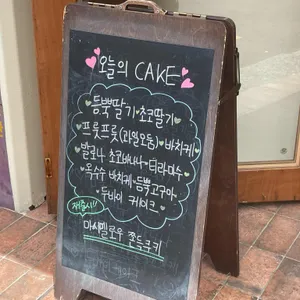 오늘의 CAKE
둠뿍딸기 초코딸기
프룻프룻(과일모둠) 바치케
발로나 초코바나나 티라미수
옥수수 바치케 듬뿍고구마
두바이 케이크
재출시!!
마시멜로우 쫀득쿠키